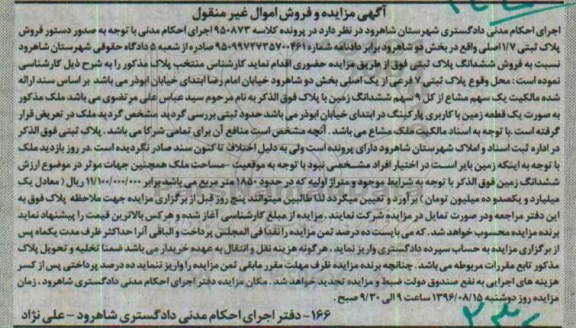 آگهی مزایده و فروش اموال غیر منقول
اجرای احکام مدنی دادگستری شهرستان شاهرود در نظر دارد در پرونده کلاسه ۹۵۰۸۷۳ اجرای احکام مدنی با توجه به صدور دستور فروش
پلاک ثبتی ۱/۷ اصلی واقع در بخش دو شاهرود برابر دادنامه شماره صادره از شعبه ۵ دادگاه حقوقی شهرستان شاهرود
نسبت به فروش ششدانگ پلاک ثبتی فوق از طریق مزایده حضوری اقدام نماید کارشناس منتخب پلاک مذکور را به شرح ذیل کارشناسی
نموده است : محل وقوع پلاک ثبتی ۷ فرعی از یک اصلی بخش دو شاهرود خیابان امام رضا ابتدای خیابان ابوذر می باشد بر اساس سند ارائه
شده مالکیت یک سهم مشاع از کل ۹ سهم ششدانگ زمین با پلاک فوق الذکر به نام مرحوم سید عباس علی مرتضوی می باشد ملک مذکور
به صورت یک قطعه زمین با کاربری پارکینگ در ابتدای خیابان ابوذر می باشد حدود ثبتی بررسی گردید مشخص گردید ملک در تعریض قرار
گرفته است . با توجه به اسناد مالکیت ملک مشاع می باشد . آنچه مشخص است منافع آن برای تمامی شرکا می باشد . پلاک ثبتی فوق الذکر
در اداره ثبت اسناد و املاک شهرستان شاهرود دارای پرونده است ولی به دلیل اختلاف تا کنون سند صادر نگردیده است . در روز بازدید ملک
با توجه به اینکه زمین بایر است در اختیار افراد مشخصی نبود با توجه به موقعیت - مساحت ملک همچنین جهات موثر در موضوع ارزش
ششدانگ زمین فوق الذکر با توجه به شرایط موجود و متراژ اولیه که در حدود ۱۸۵۰ متر مربع می باشد برابر ۱۱/۱۰۰/۰۰۰/۰۰۰ ریال ( معادل یک
میلیارد و یکصد و ده میلیون تومان ) برآورد و تعیین میگردد لذا طالبین میتوانند پنج روز قبل از برگزاری مزایده جهت ملاحظه پلاک فوق به
این دفتر مراجعه و در صورت تمایل در مزایده شرکت نمایند . مزایده از مبلغ کارشناسی آغاز شده و هر کس بالاترین قیمت را پیشنهاد نماید
برنده مزایده محسوب خواهد شد . که می بایست ده درصد ثمن مزایده را نقدا فی المجلس پرداخت و الباقی آنرا حداکثر ظرف مدت یکماه پس
از برگزاری مزایده به حساب سپرده دادگستری واریز نماید . هرگونه هزینه نقل و انتقال به عهده خریدار می باشد ضمنا تخلیه و تحویل پلاک
مذکور تابع مقررات مربوطه می باشد . چنانچه برنده مزایده ظرف مهلت مقرر مابقی ثمن مزایده را واریز ننماید ده درصد پرداختی پس از کسر
هزینه های اجرایی به نفع صندوق دولت ضبط و مزایده تجدید خواهد شد . مکان مزایده دفتر اجرای احکام مدنی دادگستری شاهرود ، زمان
مزایده روز دوشنبه ۱۳۹۶/۰۸/۱۵ ساعت ۹ الی ۹/۳۰ صبح .
۱۶۶- دفتر اجرای احکام مدنی دادگستری شاهرود - علی نژاد